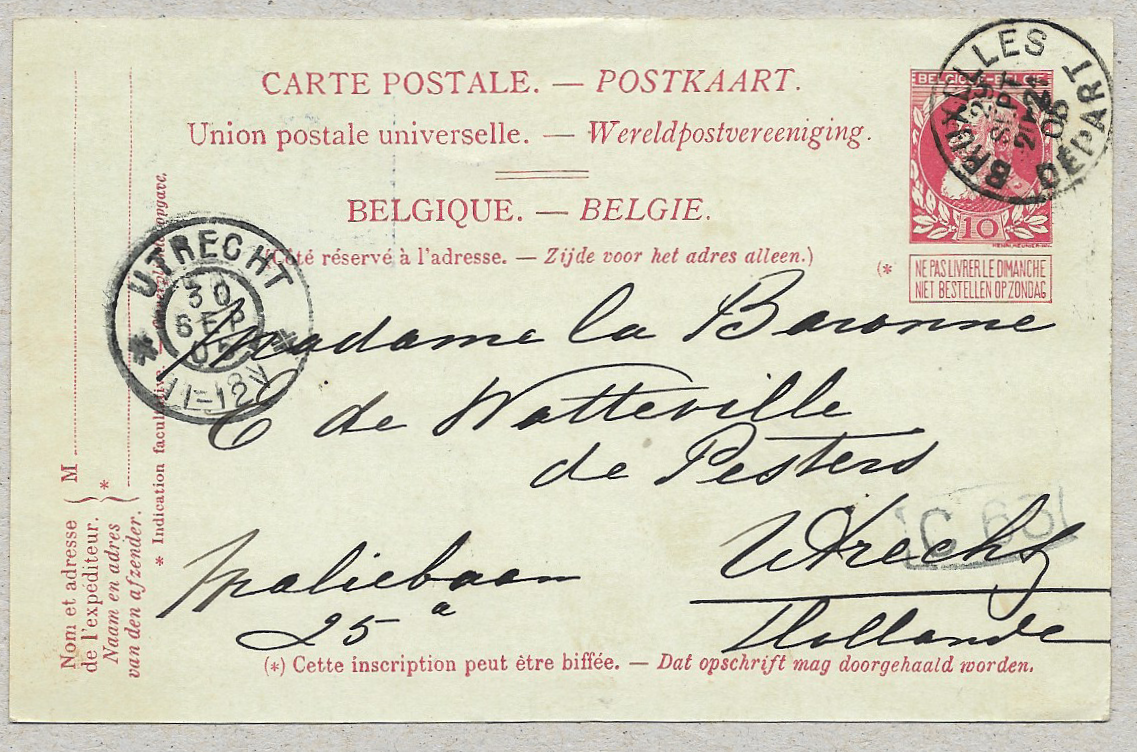 CARTE POSTALE. — POSTKAART.
Union postale universelle. — Wereldpostvereeniging.
BELGIQUE. — BELGIE.
(Côté réservé à l'adresse. — Zijde voor het adres alleen.)
BELGIQUE-BELGIE
10
(*
NE PAS LIVRER LE DIMANCHE
NIET BESTELLEN OP ZONDAG
BRUXELLES
SEPT
DÉPART
UTRECHT
30
SEP
11-12V
Madame la Baronne
C de Watteville
de Pesters
Utrecht
Maliebaan
25 a
Hollande
(*) Cette inscription peut être biffée. — Dat opschrift mag doorgehaald worden.
M
Nom et adresse
de l'expéditeur.
Naam en adres
van den afzender.
*
* Indication